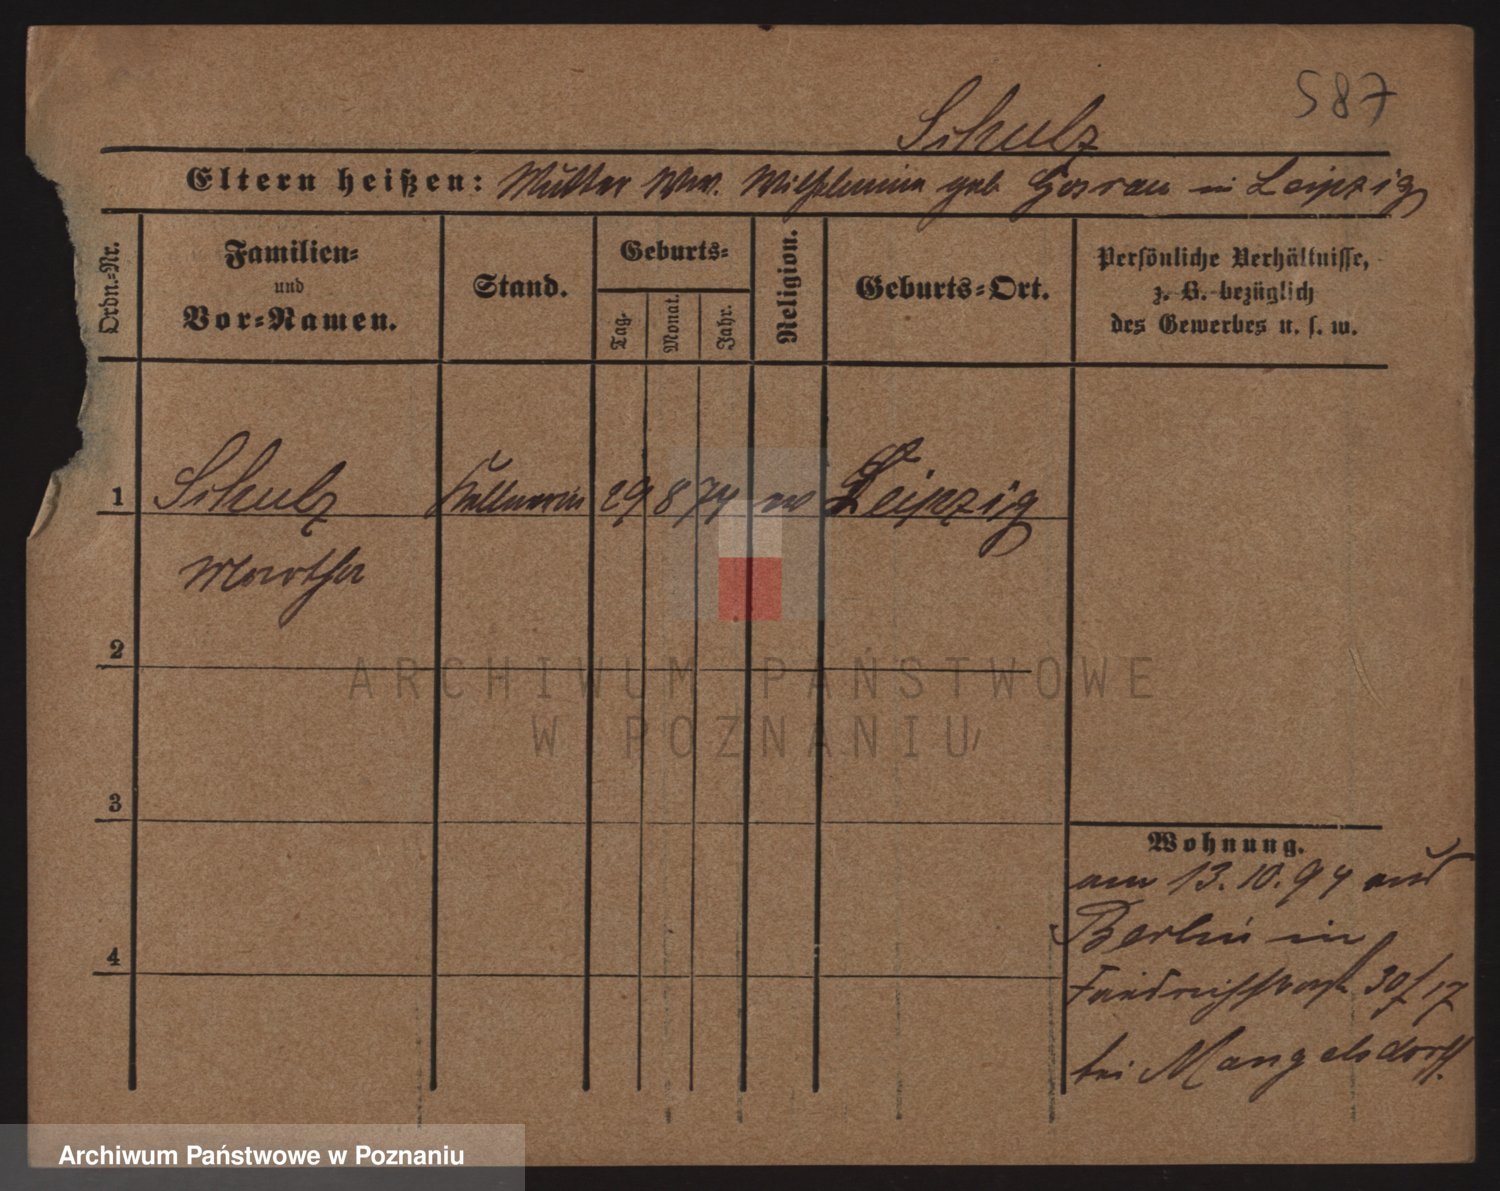 587
Schulz
Eltern heißen: Mutter Ww. Wilhelmine geb. in Leipzig
Ordn.-Nr.
Familien-
und
Vor-Namen.
Stand.
Geburts-
Tag.
Monat.
Jahr.
Religion.
Geburts-Ort.
Persönliche Verhältnisse,
z. B. bezüglich
des Gewerbes u. s. w.
1 Schulz Kellnerin 29 8 74 ev Leipzig
Martha
2
ARCHIWUM PAŃSTWOWE
W POZNANIU
3
Wohnung.
am 13.10.94 aus
Berlin in
4
Friedrichstraße 30/17
bei Mangelsdorff.
Archiwum Państwowe w Poznaniu